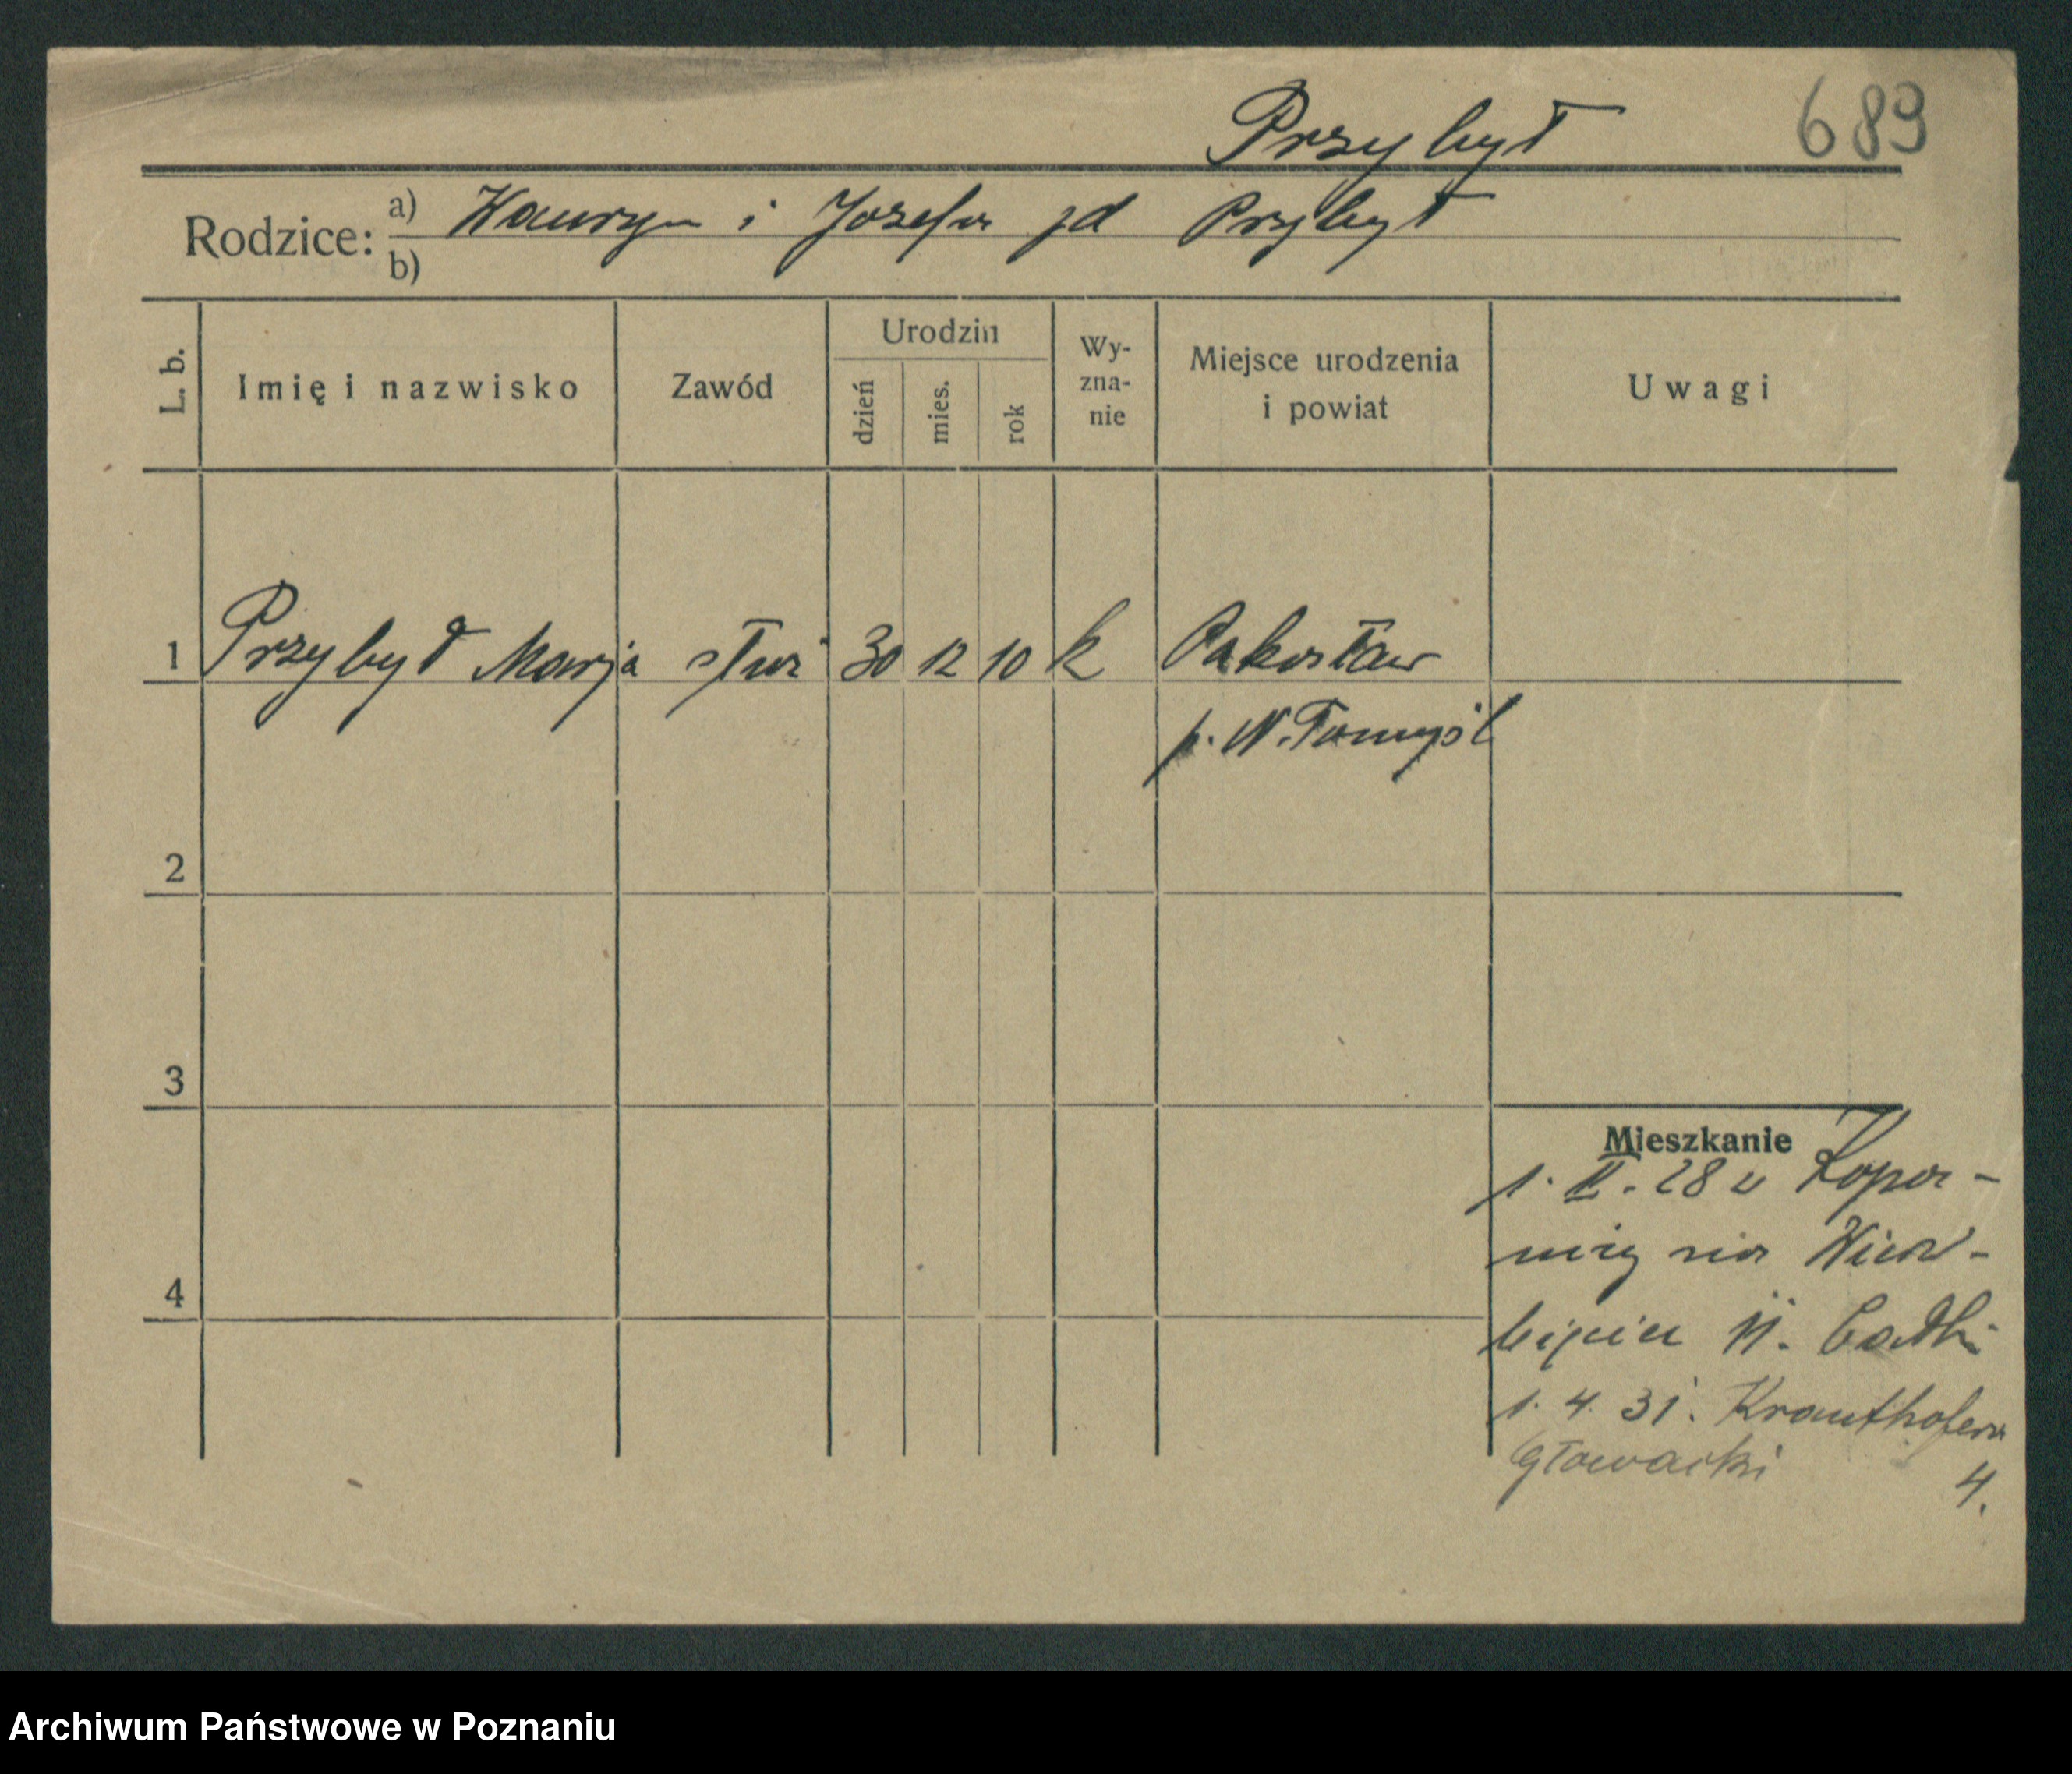 689
Przybył
Rodzice: a) Wawrzyn i Józefa jd Przybył
b)
L. b. Imię i nazwisko Zawód Urodzin dzień mies. rok Wyznanie Miejsce urodzenia i powiat Uwagi
1 Przybył Marja służ 30 12 10 k Pakosław
p. N. Tomyśl
2
3
4
Mieszkanie
1. II. 28 u
1. 4. 31. Krauthofera
Głowacki 4.
Archiwum Państwowe w Poznaniu